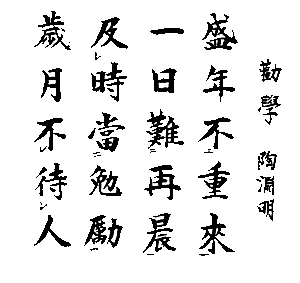 勸學 陶淵明
盛年不重來
一日難再晨
及時當勉勵
歲月不待人